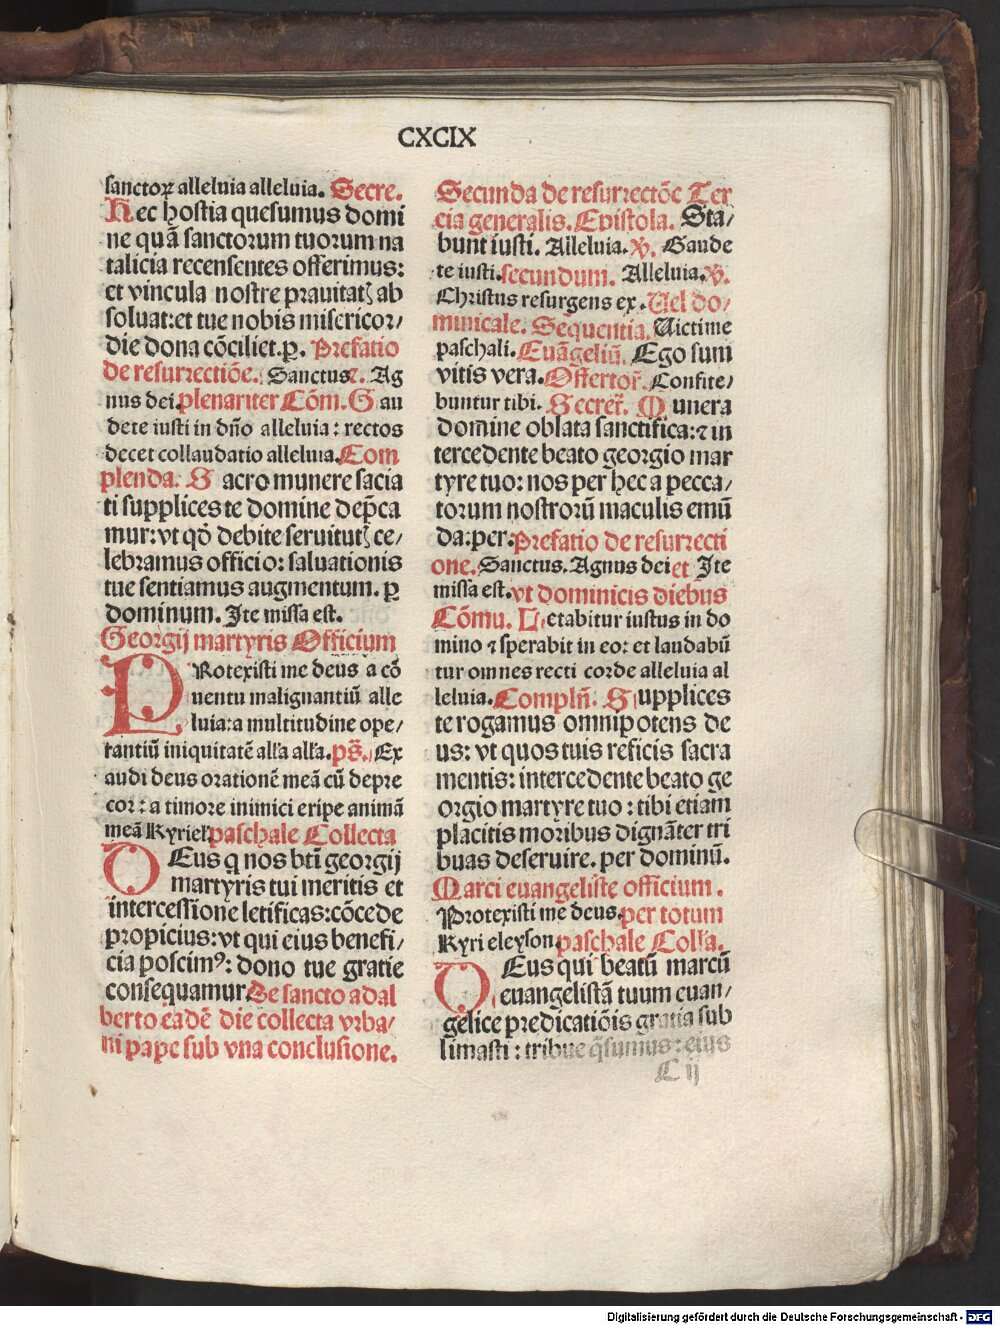 CXCIX
sanctoꝝ alleluia alleluia. Secre.
Hec hostia quesumus domi
ne quã sanctorum tuorum na
talicia recensentes offerimus:
et vincula nostre prauitatꝭ ab
soluat:et tue nobis misericor/
die dona cõciliet.p̲. Prefatio
de resurrectiõe. Sanctus. Ag
nus dei.plenariter Cõm.Gau
dete iusti in dño alleluia: rectos
decet collaudatio alleluia.Com
plenda. Sacro munere sacia
ti supplices te domine dep̃ca
mur:vt qđ debite seruitutꝭ ce/
lebramus officio: saluationis
tue sentiamus augmentum. p̲
dominum. Ite missa est.
Georgij martyris Officium
PRotexisti me deus a cõ
uentu malignantiũ alle
luia:a multitudine ope/
rantiũ iniquitatẽ alľa alľa.ps̃. Ex
audi deus orationẽ meã cũ depre
cor: a timore inimici eripe animã
meã Kyrieľ.paschale Collecta
OEus q nos bti̇̃ georgij
martyris tui meritis et
intercessione letificas:cõcede
propicius:vt qui eius benefi/
cia poscimꝰ: dono tue gratie
consequamur De sancto adal
berto eadẽ die collecta vrba/
ni pape sub vna conclusione.
Secunda de resurrectõe Ter
cia generalis. Epistola. Sta/
bunt iusti. Alleluia.℣. Gaude
te iusti.secundum. Alleluia.℣.
Christus resurgens ex.Uel do/
minicale. Sequentia.Uictime
paschali.Euãgeliũ. Ego sum
vitis vera.Offertor̃. Confite/
buntur tibi. Secret̃. Munera
domine oblata sanctifica:⁊ in
tercedente beato georgio mar
tyre tuo: nos per hec a pecca/
torum nostrorũ maculis emũ
da:per.Prefatio de resurrecti
one.Sanctus.Agnus dei et Ite
missa est.vt dominicis diebus
Cõmu. Letabitur iustus in do
mino ⁊ sperabit in eo: et laudabũ
tur omnes recti corde alleluia al
leluia.Complñ. Supplices
te rogamus omnipotens de
us: vt quos tuis reficis sacra
mentis: intercedente beato ge
orgio martyre tuo: tibi etiam
placitis moribus dignãter tri
buas deseruire. per dominũ.
Marci euangeliste officium.
Protexisti me deus.per totum
Kyri eleyson paschale Colľa.
OEus qui beatũ marcũ
euangelistã tuum euan/
gelice predicatiõis gratia sub
limasti: tribue q̃sumus: eius
C ij
Digitalisierung gefördert durch die Deutsche Forschungsgemeinschaft - DFG